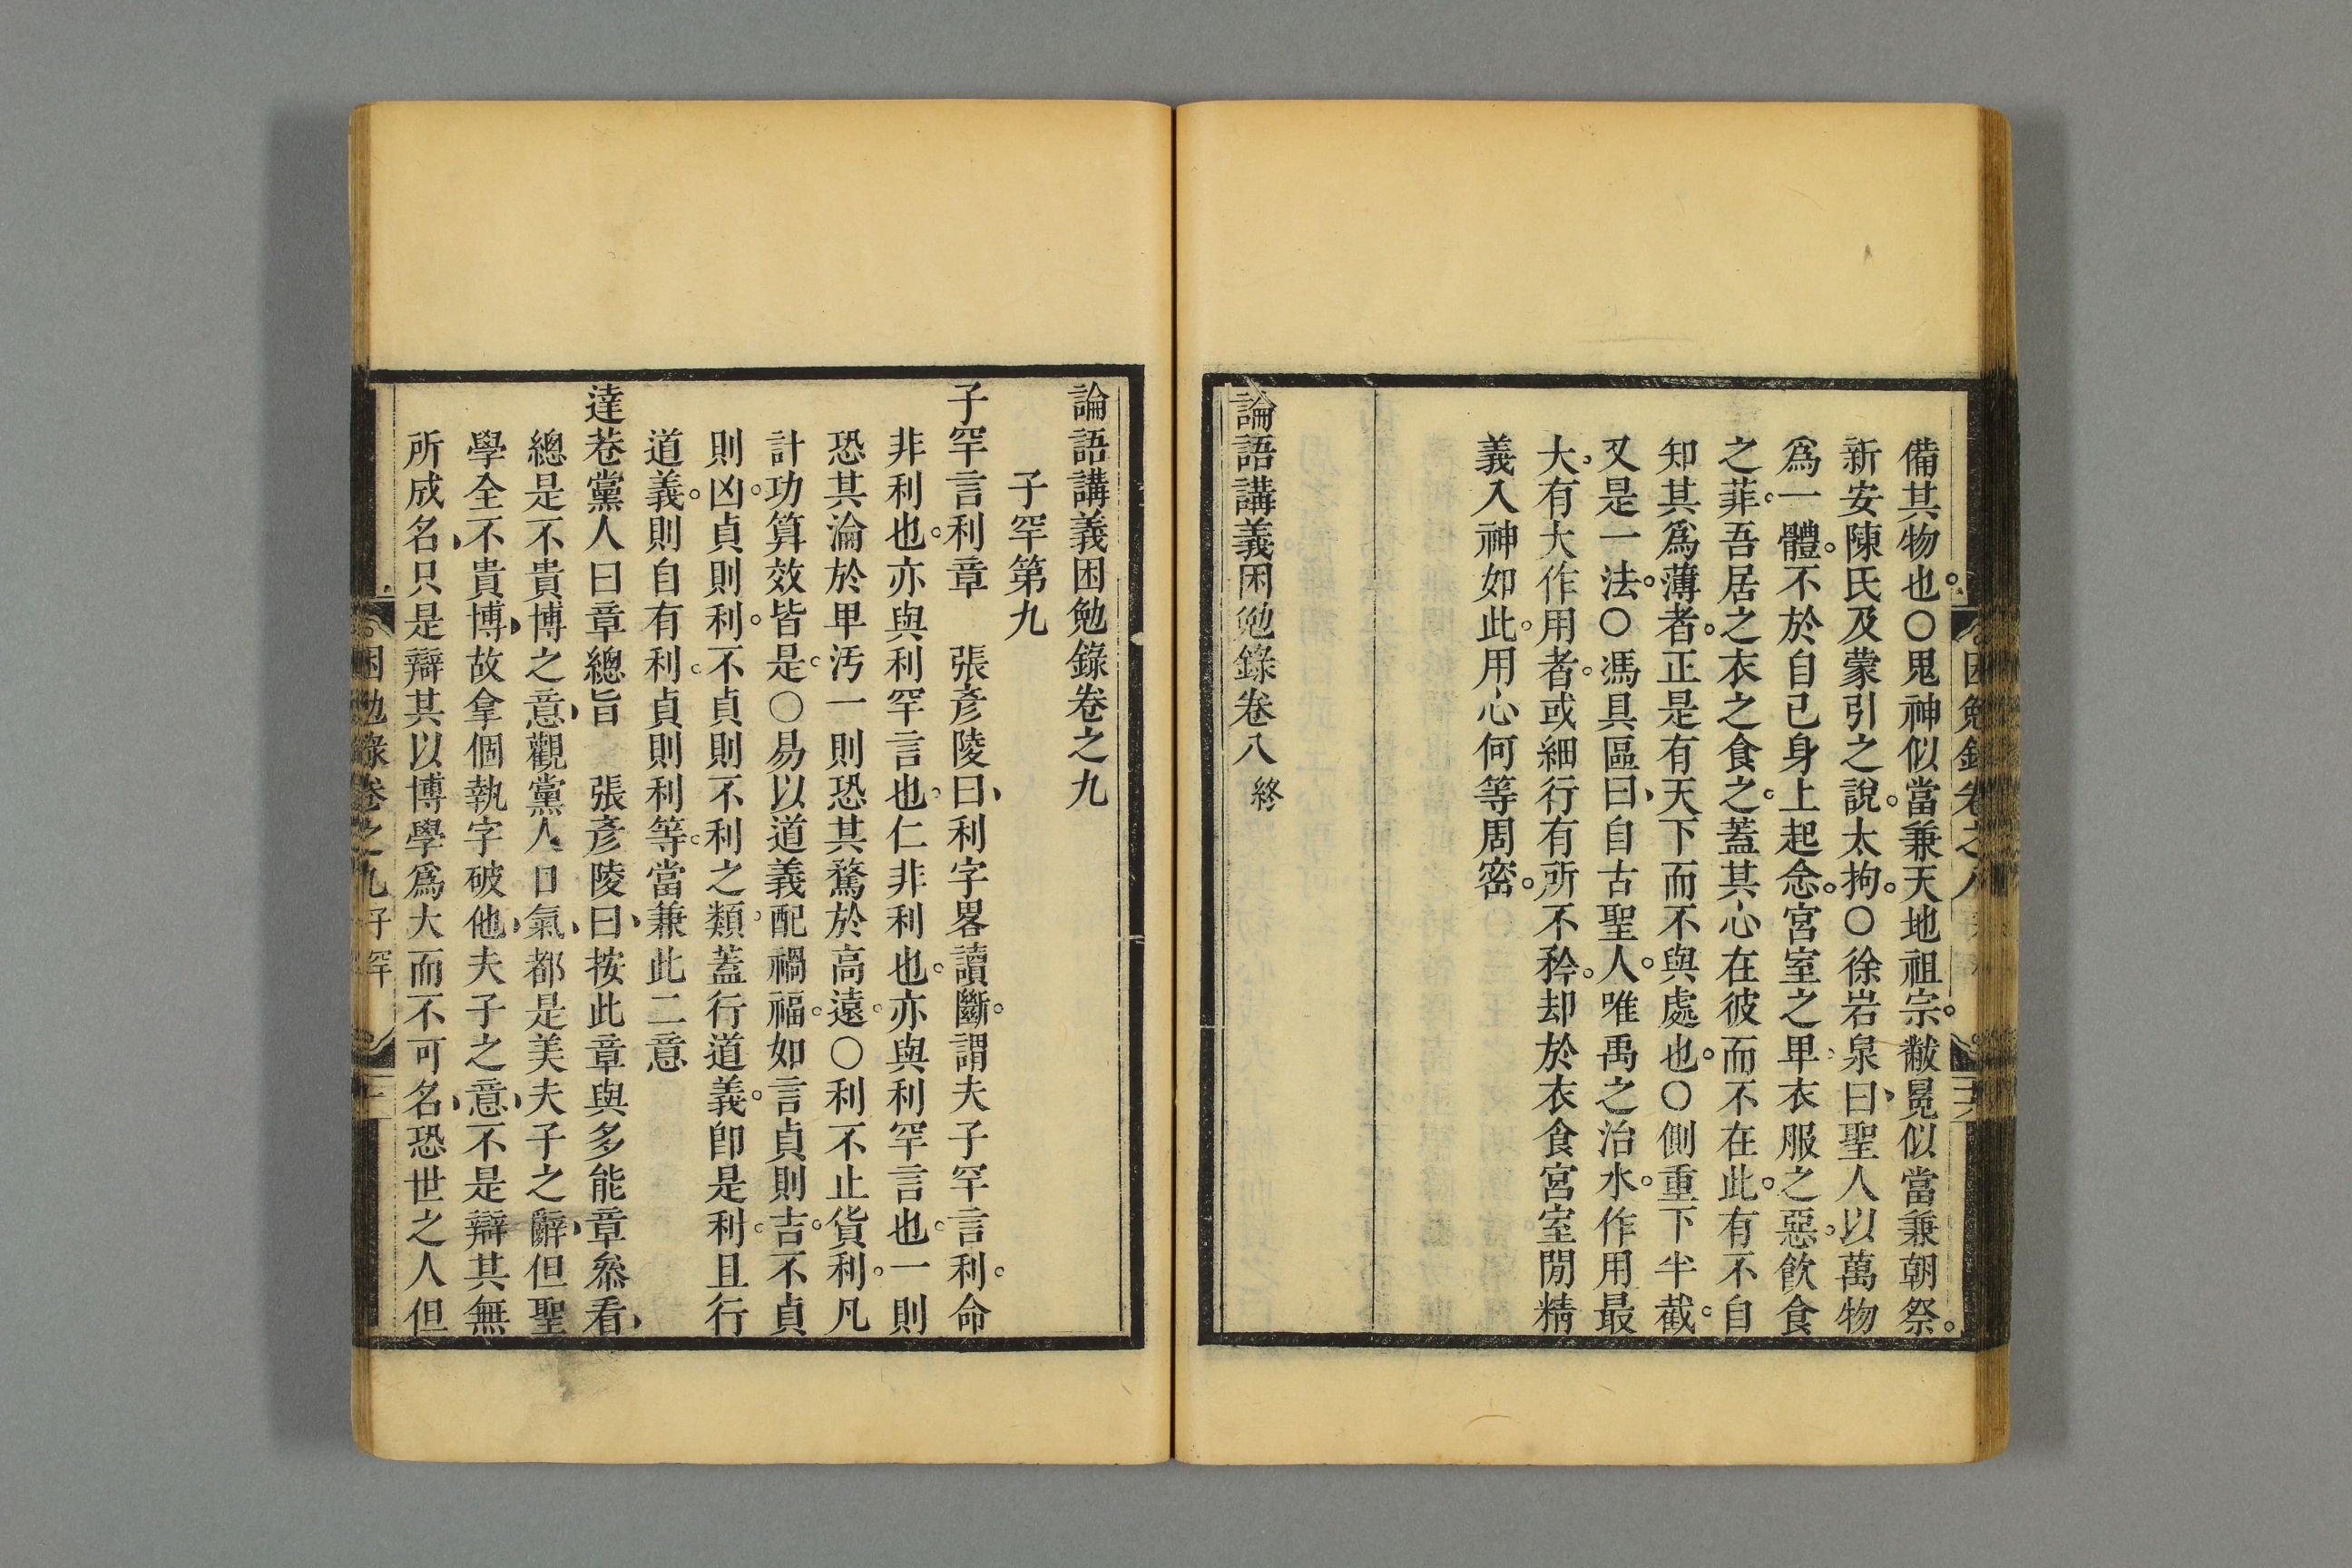 備其物也。○鬼神似當兼天地祖宗。黻冕似當兼朝祭。
新安陳氏及蒙引之說。太拘。○徐岩泉曰、聖人以萬物
爲一體。不於自己身上起念。宮室之卑衣服之惡。飲食
之菲。吾居之衣之食之。蓋其心在彼而不在此。有不自
知其爲薄者。正是有天下而不與處也。○側重下半截。
又是一法。○馮具區曰、自古聖人。唯禹之治水。作用最
大、有大作用者。或細行有所不矜。却於衣食宮室。閒精
義入神如此。用心何等周密。
論語講義困勉錄卷八終
論語講義困勉錄卷之九
子罕第九
子罕言利章　張彥陵曰、利字畧讀斷。謂夫子罕言利。命
非利也。亦與利罕言也。仁非利也。亦與利罕言也。一則
恐其淪於卑汚一則恐其騖於高遠。○利不止貨利。凡
計功算效皆是。○易以道義配禍福。如言貞則吉。不貞
則凶。貞則利。不貞則不利之類。蓋行道義。卽是利。且行
道義。則自有利。貞則利等。當兼此二意
達巷黨人曰章總旨　張彥陵曰、按此章與多能章叅看、
總是不貴博之意、觀黨人口氣、都是美夫子之辭、但聖
學全不貴博、故拿個執字破他、夫子之意、不是辯其無
所成名、只是辯其以博學爲大而不可名、恐世之人但
困勉錄卷之九子罕